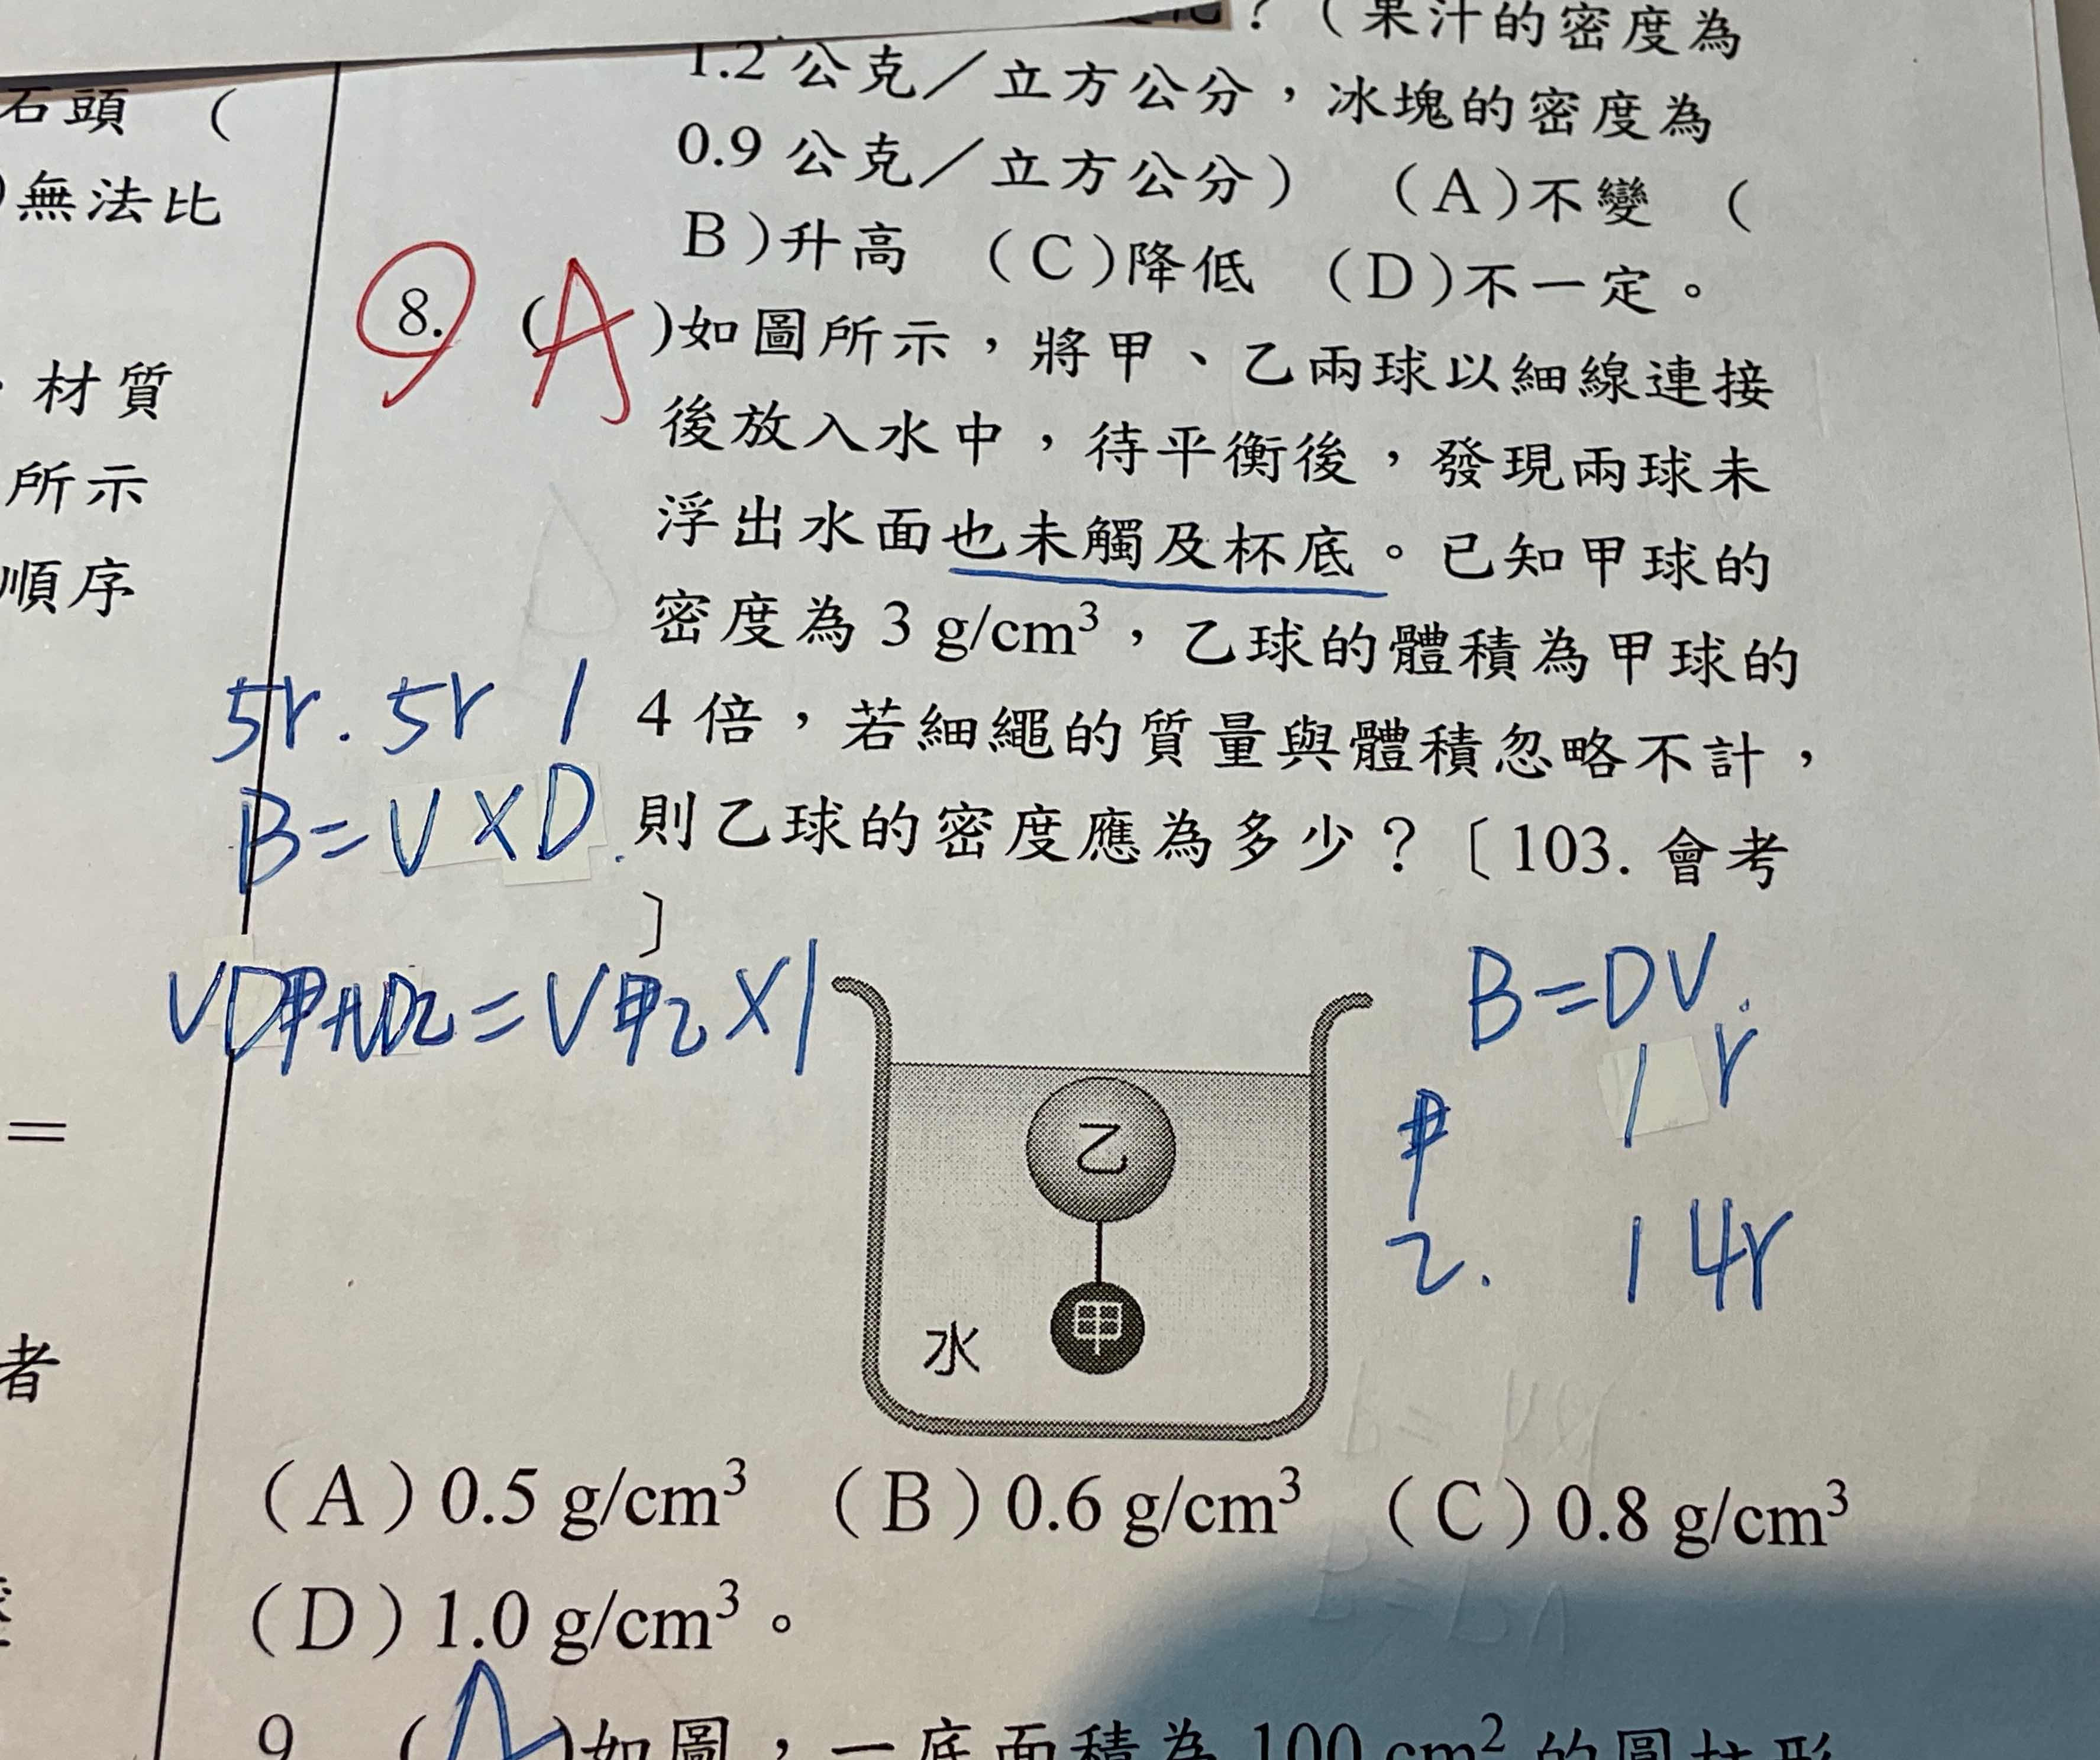 ？（果汁的密度為
1.2 公克／立方公分，冰塊的密度為
0.9 公克／立方公分） （A）不變 （
B）升高 （C）降低 （D）不一定。
石頭 （
）無法比
材質
所示
順序
=
者
8. (A)如圖所示，將甲、乙兩球以細線連接
後放入水中，待平衡後，發現兩球未
浮出水面也未觸及杯底。已知甲球的
密度為 3 g/cm³，乙球的體積為甲球的
4 倍，若細繩的質量與體積忽略不計，
則乙球的密度應為多少？〔103. 會考
〕
5r. 5r 1
B=V×D.
VD甲+VD乙=V甲乙×1
B=DV.
1 r
甲
乙. 1 4r
乙
甲
水
（A）0.5 g/cm³ （B）0.6 g/cm³ （C）0.8 g/cm³
（D）1.0 g/cm³。
9. ( )如圖，一底面積為 100 cm² 的圓柱形